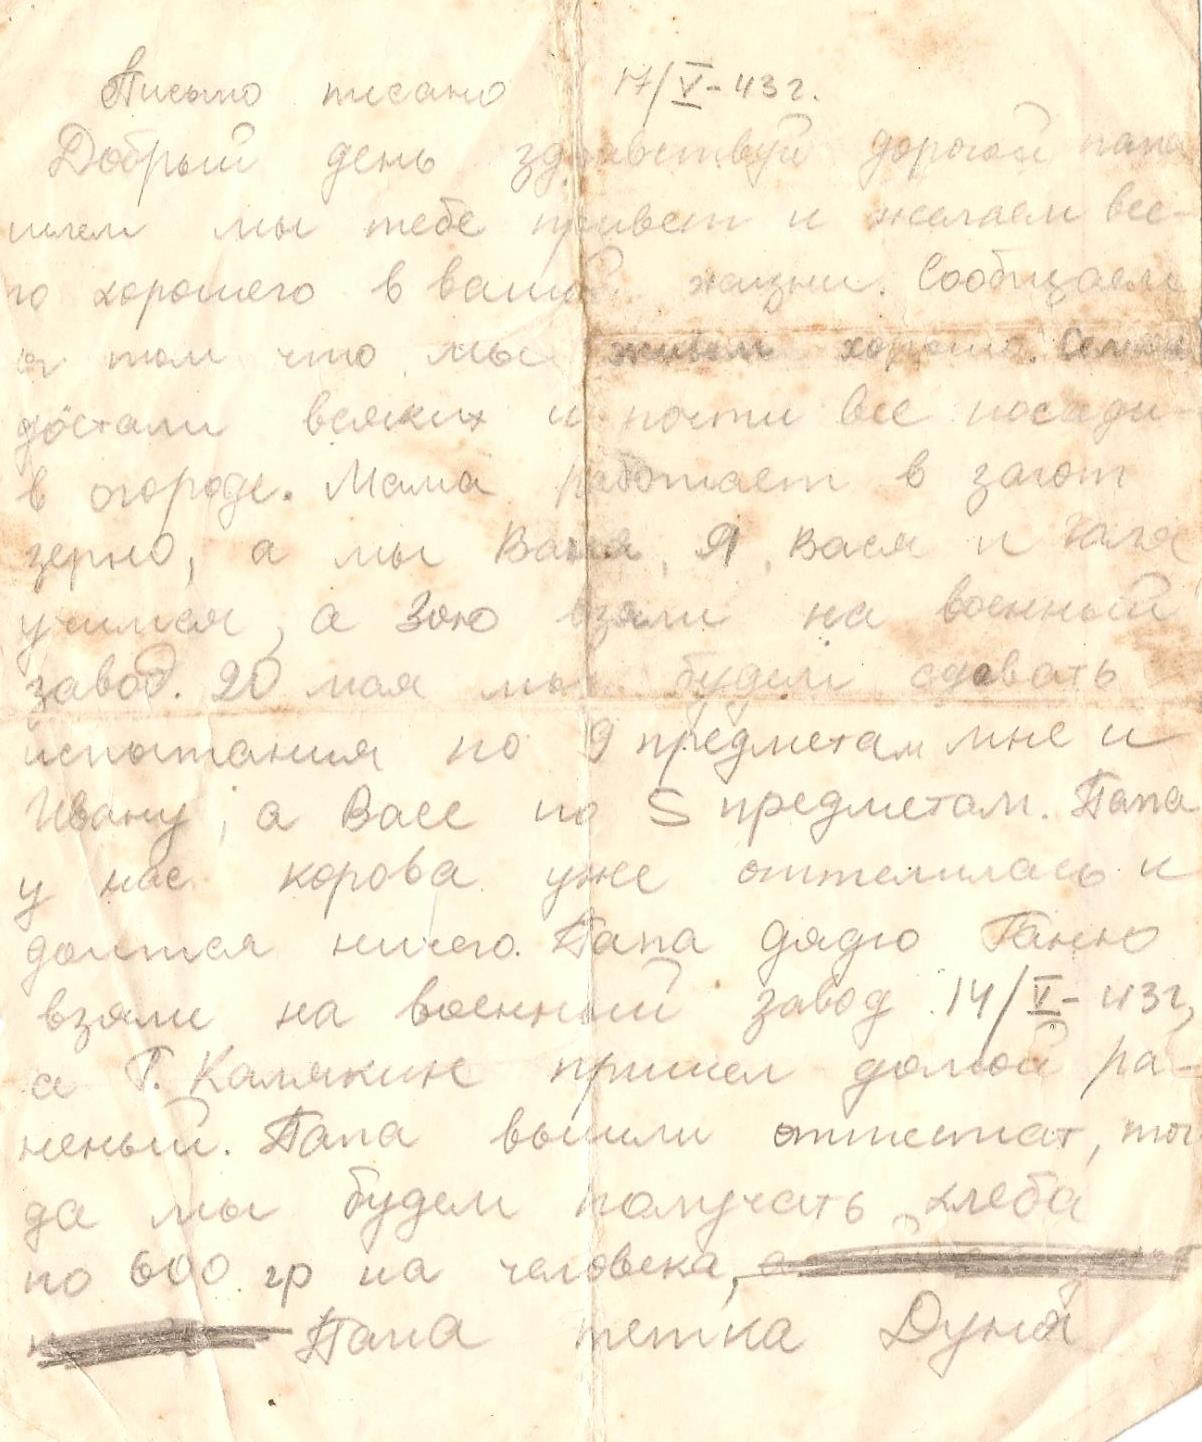 Письмо писано 17/V-43г.
Добрый день здравствуй дорогой папа
шлем мы тебе привет и желаем все-
го хорошего в вашей жизни. Сообщаем
о том что мы живем хорошо. Семян
достали всяких и почти все посади-
в огороде. Мама работает в загот
зерно, а мы Ваня, Я, Вася и Галя
учимся, а Зою взяли на военный
завод. 20 мая мы будем сдовать
испытания по 9 предметам мне и
Ивану, а Васе по 5 предметам. Папа
у нас корова уже оттелилась и
доится ничего. Папа дядю Ганю
взяли на военный завод 14/V-43г,
а Г. Калякин пришел домой ра-
неный. Папа вышли аттестат, тог
да мы будем получать хлеба
по 600 гр на человека,
Папа тетка Дуня